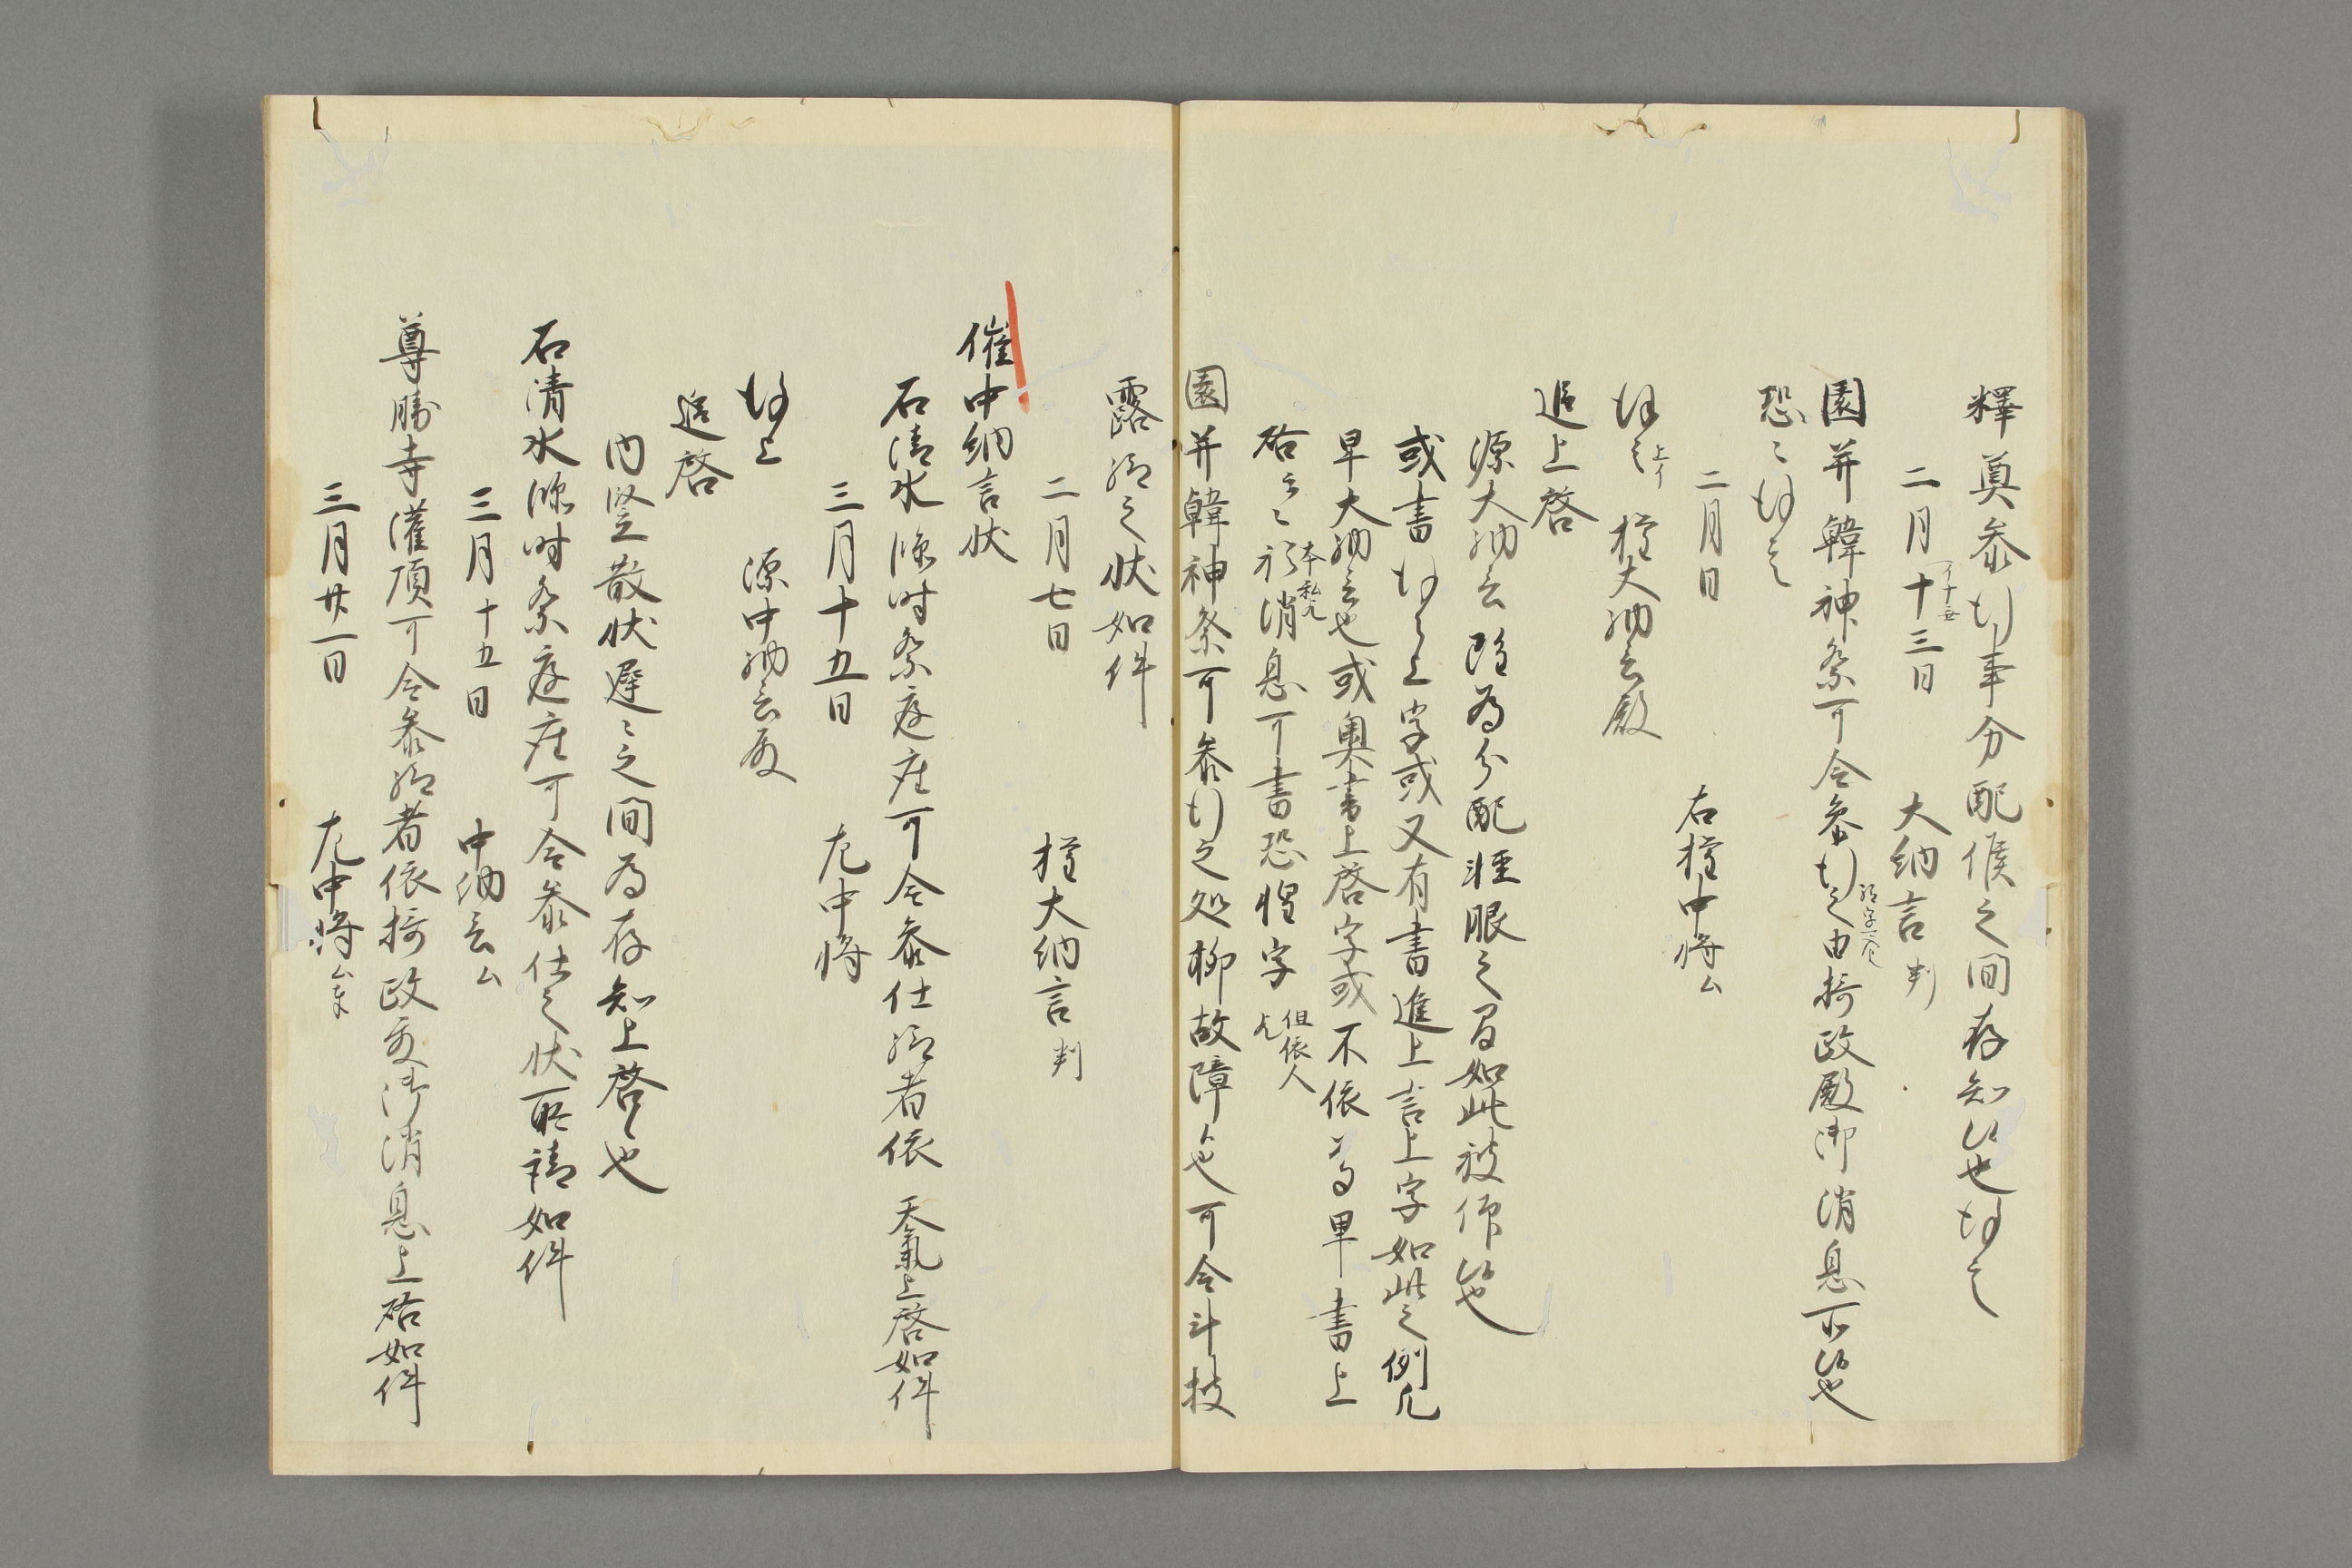 釋奠参行事分配候之間存知候也謹言
二月十三日　大納言判
イ十五
園并韓神祭可令参行之由摂政殿御消息所候也
恐々謹言
二月日　右権中将ム
謹言上　権大納言殿
上イ
追上啓
源大納言雖為分配軽服之間如此被仰候也
或書謹々上字或又有書進上言上字如此之例凡
早大納言也或奥書上啓字或不依為畢書上
啓云々私消息可書恐惶字但依人
園并韓神祭可参行之処柳故障候也可令計披
露給之状如件
二月七日　権大納言判
催中納言状
石清水臨時祭庭座可令参仕給者依　天氣上啓如件
三月十五日　左中将
謹上　源中納言殿
追啓
内竪散状遅々之間為存知上啓候也
石清水臨時祭庭座可令参仕之状所請如件
三月十五日　中納言ム
尊勝寺灌頂可令参給者依摂政殿御消息上啓如件
三月廿一日　左中将ム奉